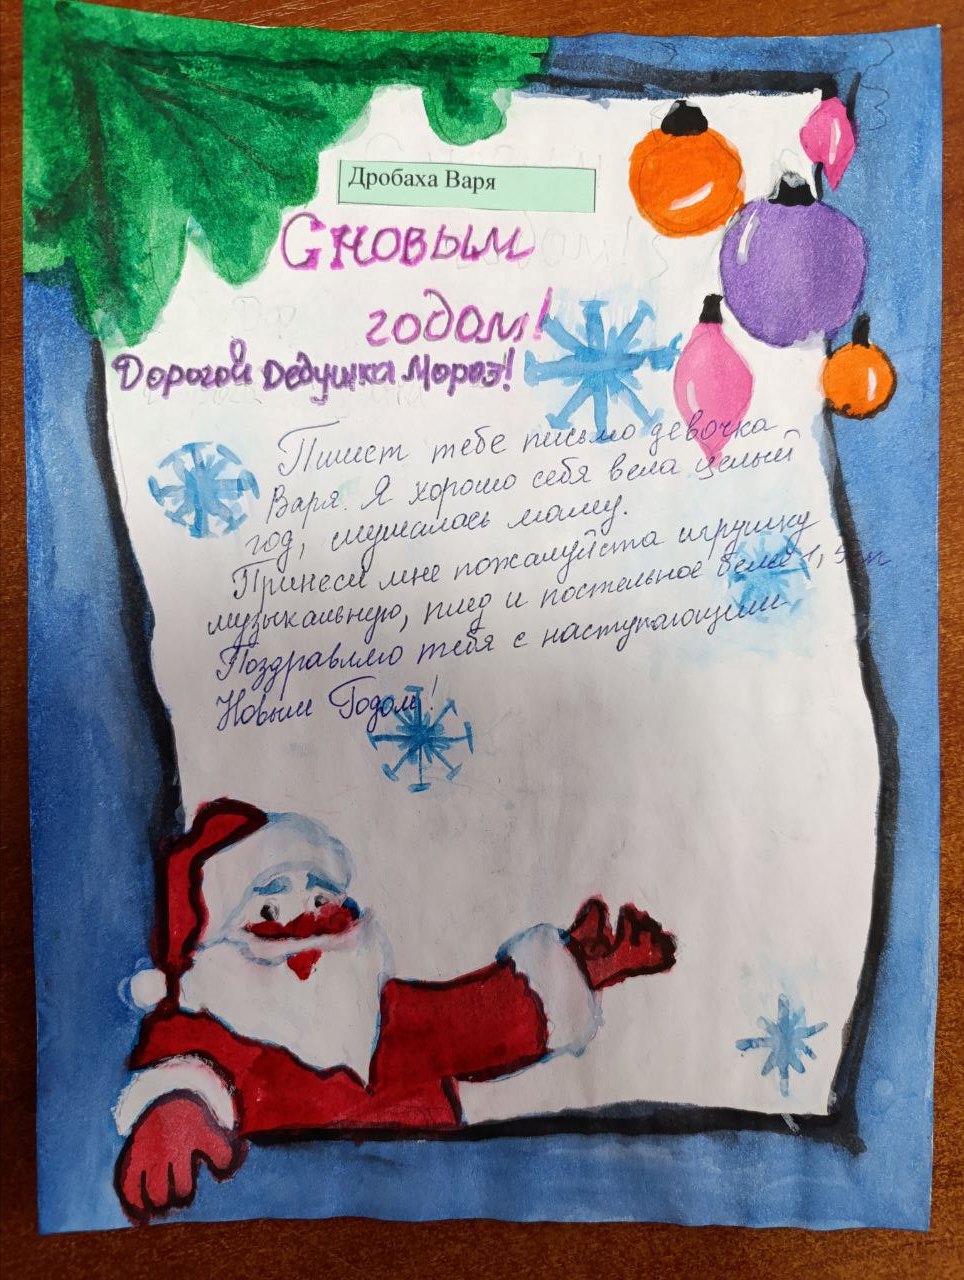 Дробаха Варя
С новым
годом!
Дорогой Дедушка Мороз!
Пишет тебе письмо девочка
Варя. Я хорошо себя вела целый
год, слушалась маму.
Принеси мне пожалуйста игрушку
музыкальную, плед и постельное бельё 1,5 сп
Поздравляю тебя с наступающим
Новым Годом!